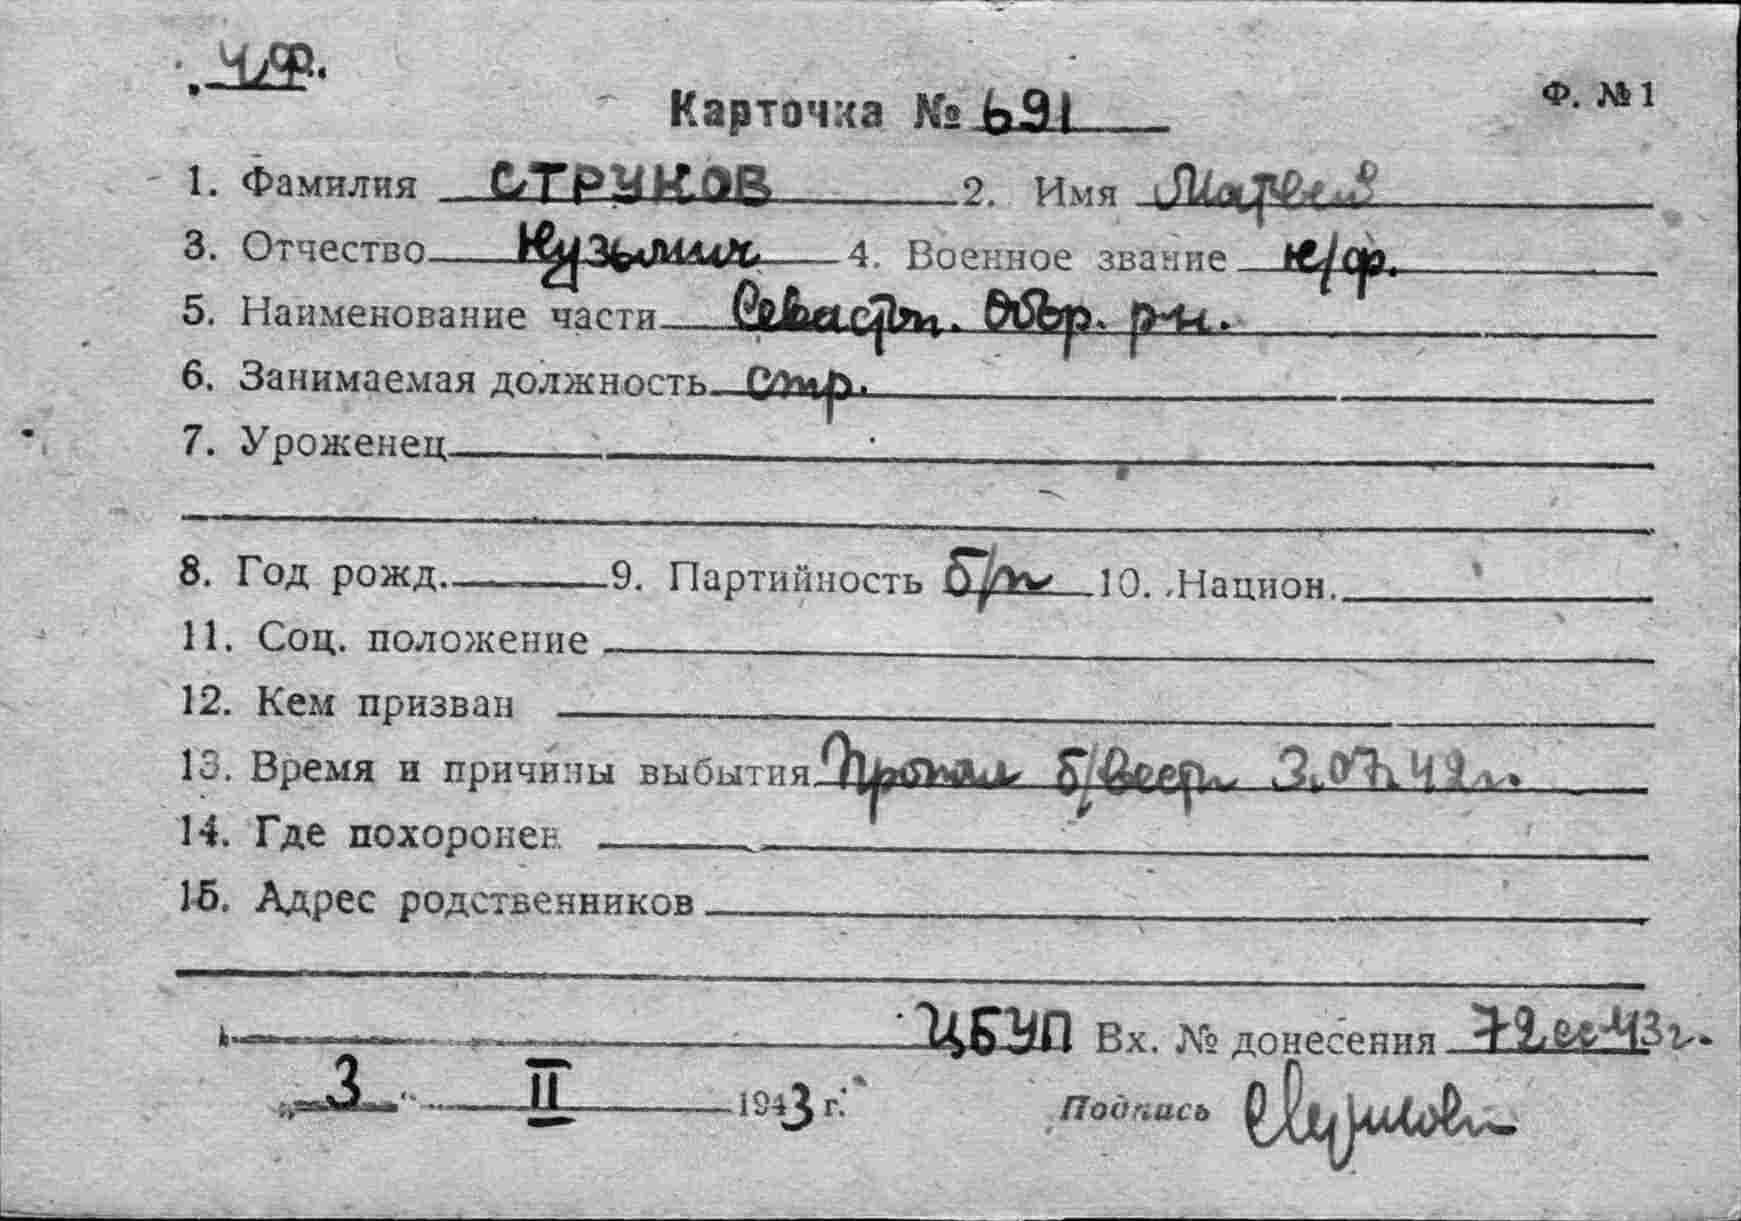 ч/ф.
Ф. № 1
Карточка № 691
1. Фамилия СТРУКОВ 2. Имя Матвей
3. Отчество Кузьмич 4. Военное звание к/ф.
5. Наименование части Севастоп. Обор. рн.
6. Занимаемая должность стр.
7. Уроженец
8. Год рожд. 9. Партийность б/п 10. Национ.
11. Соц. положение
12. Кем призван
13. Время и причины выбытия Пропал б/вести 3.07.42 г.
14. Где похоронен
15. Адрес родственников
ЦБУП Вх. № донесения 72сс 43 г.
„3“ II 1943 г. Подпись